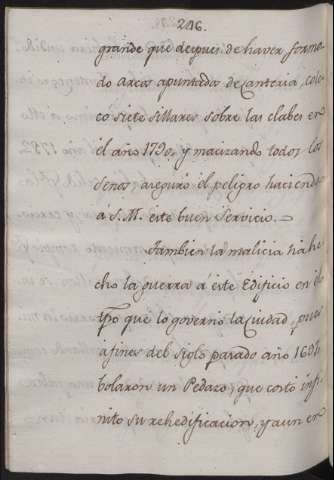 246.
grande que despues de haver forma-
do arcos apuntados de Canteria, colo-
co siete sillares sobre las clabes en
el año 1790, y macizando todos los
senos, aseguró el peligro haciendo
á S.M. este buen Servicio.=
Tambien la malicia ha he
cho la guerra á este Edificio en el
tpo que lo governó la Ciudad, pues
á fines del siglo pasado año
bolaron un Pedazo, que costó infi-
nito su rehedificacion, y aun en